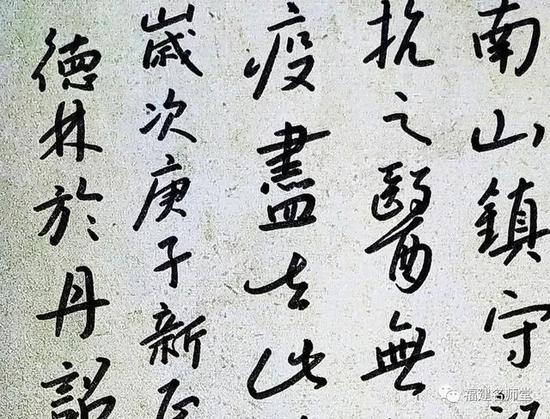 南山鎮守
抗之醫無
疫盡去此
歲次庚子新
德林於丹詔
福建名师堂